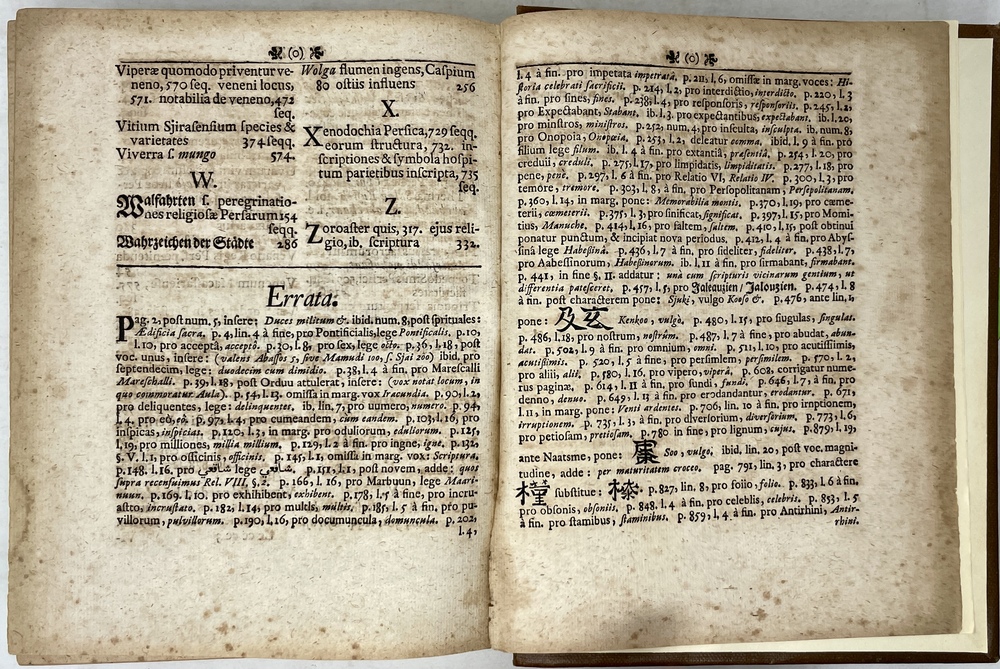 (o)
Viperæ quomodo priventur ve-
neno, 570 seq. veneni locus,
571. notabilia de veneno, 472
seq.
Vitium Sjirasensium species &
varietates 374 seqq.
Viverra s. mungo 574.
W.
Walfahrten s. peregrinatio-
nes religiosæ Persarum 154
seqq.
Wahrzeichen der Städte 286
Wolga flumen ingens, Caspium
80 ostiis influens 256
X.
Xenodochia Persica, 729 seqq.
eorum structura, 732. in-
scriptiones & symbola hospi-
tum parietibus inscripta, 735
seq.
Z.
Zoroaster quis, 317. ejus reli-
gio, ib. scriptura 332.
Errata.
Pag. 2, post num. 5, insere: Duces militum &. ibid. num. 8, post sprituales:
Ædificia sacra. p. 4, lin. 4 à fine, pro Pontificialis, lege Pontificalis. p. 10,
l. 10, pro acceptâ, acceptô. p. 30, l. 8, pro sex, lege octo. p. 36, l. 18, post
voc. unus, insere: (valens Abassos 5, sive Mamudi 100, s. Sjai 200) ibid. pro
septendecim, lege: duodecim cum dimidio. p. 38, l. 4 à fin. pro Marescalli
Mareschalli. p. 39, l. 18, post Orduu attulerat, insere: (vox notat locum, in
quo commoratur Aula). p. 54, l. 13. omissa in marg. vox Iracundia. p. 90, l. 2,
pro deliquentes, lege: delinquentes. ib. lin. 7, pro uumero, numero. p. 94,
l. 4. pro eô, eâ. p. 97, l. 4, pro cumeandem, cum eandem. p. 103, l. 16, pro
inspicas, inspicias. p. 120, l. 2, in marg. pro oduliorum, edullorum. p. 125,
l. 19, pro milliones, millia millium. p. 129, l. 2 à fin. pro ingne, igne. p. 132,
§. V. l. 1. pro officinis, officinis. p. 145, l. 1, omissa in marg. vox: Scriptura.
p. 148. l. 16. pro شاقعي lege شافعي. p. 151, l. 1, post novem, adde: quos
supra recensuimus Rel. VIII, §. 2. p. 166, l. 16, pro Marbuun, lege Maari-
nuun. p. 169. l. 10. pro exhihibent, exhibent. p. 178, l. 5 à fine, pro incru-
astto, incrustato. p. 182, l. 14, pro multls, multis. p. 185, l. 5 à fin. pro pu-
villorum, pulvillorum. p. 190, l. 16, pro documuncula, domuncula. p. 202,
l. 4,
(o)
l. 4 à fin. pro impetata impetratâ. p. 211, l. 6, omissæ in marg. voces: Hi-
storia celebrati sacrificii. p. 214, l. 2, pro interdictio, interdicto. p. 220, l. 3
à fin. pro sines, fines. p. 238, l. 4, pro responsoris, responsoriis. p. 245, l. 2,
pro Expectabant, Stabant. ib. l. 3. pro expectantibus, expectabant. ib. l. 20,
pro minstros, ministros. p. 252, num. 4, pro insculta, insculpta. ib. num. 8,
pro Onopoia, Onopœia. p. 253, l. 2, deleatur comma. ibid. l. 9 à fin. pro
filium lege filum. ib. l. 4 à fin. pro extantiâ, præsentiâ. p. 254, l. 20, pro
creduii, creduli. p. 275, l. 17, pro limpidatis, limpiditatis. p. 277, l. 18, pro
pene, penè. p. 297, l. 6 à fin. pro Relatio VI, Relatio IV. p. 300, l. 3, pro
temore, tremore. p. 303, l. 8, à fin. pro Persopolitanam, Persepolitanam.
p. 360, l. 14, in marg. pone: Memorabilia montis. p. 370, l. 19, pro cæme-
terii, cœmeterii. p. 375, l. 3, pro sinificat, significat. p. 397, l. 15, pro Momi-
tius, Manuche. p. 414, l. 16, pro saltem, saltem. p. 410, l. 15, post obtinui
ponatur punctum, & incipiat nova periodus. p. 412, l. 4 à fin. pro Abys-
sinâ lege Habeßinâ. p. 436, l. 7 à fin. pro fideliter, fideliter. p. 438, l. 7,
pro Aabessinorum, Habeßinorum. ib. l. 11 à fin. pro sirmabant, firmabant.
p. 441, in fine §. II. addatur: unà cum scripturis vicinarum gentium, ut
differentia patesceret. p. 457, l. 5, pro Jaleauzien / Jalouzien. p. 474, l. 8
à fin. post characterem pone: Sjuki, vulgo Kooso &. p. 476, ante lin. 1,
pone: 及玄 Kenkoo, vulgò. p. 480, l. 15, pro siugulas, singulas.
p. 486, l. 18, pro nostrum, nostrûm. p. 487, l. 7 à fine, pro abudat, abun-
dat. p. 502, l. 9 à fin. pro omnium, omni. p. 511, l. 10, pro acutissiimis,
acutißimis. p. 520, l. 5 à fine, pro persimlem, persimilem. p. 570, l. 2,
pro aliii, alii. p. 580, l. 16, pro vipero, viperâ. p. 608. corrigatur nume-
rus paginæ, p. 614, l. 11 à fin. pro sundi, fundi. p. 646, l. 7, à fin. pro
denno, denuo. p. 649, l. 13 à fin. pro erodanantur, erodantur. p. 671,
l. 11, in marg. pone: Venti ardentes. p. 706, lin. 10 à fin. pro irnptionem,
irruptionem. p. 735, l. 3, à fin. pro dlversorium, diversorium. p. 773, l. 6,
pro petiosam, pretiosam. p. 780 in fine, pro lignum, cujus. p. 879, l. 19,
ante Naatsme, pone: Soo, vulgò, ibid. lin. 20, post voc. magni-
tudine, adde: per maturitatem crocco. pag. 791, lin. 3, pro charactere
substitue: p. 827, lin. 8, pro solio, folio. p. 833, l. 6 à fin.
pro obsonis, obsoniis. p. 848. l. 4 à fin. pro celeblis, celebris. p. 853, l. 5
à fin. pro stamibus, staminibus. p. 859, l. 4 à fin. pro Antirhini, Antir-
rhini.